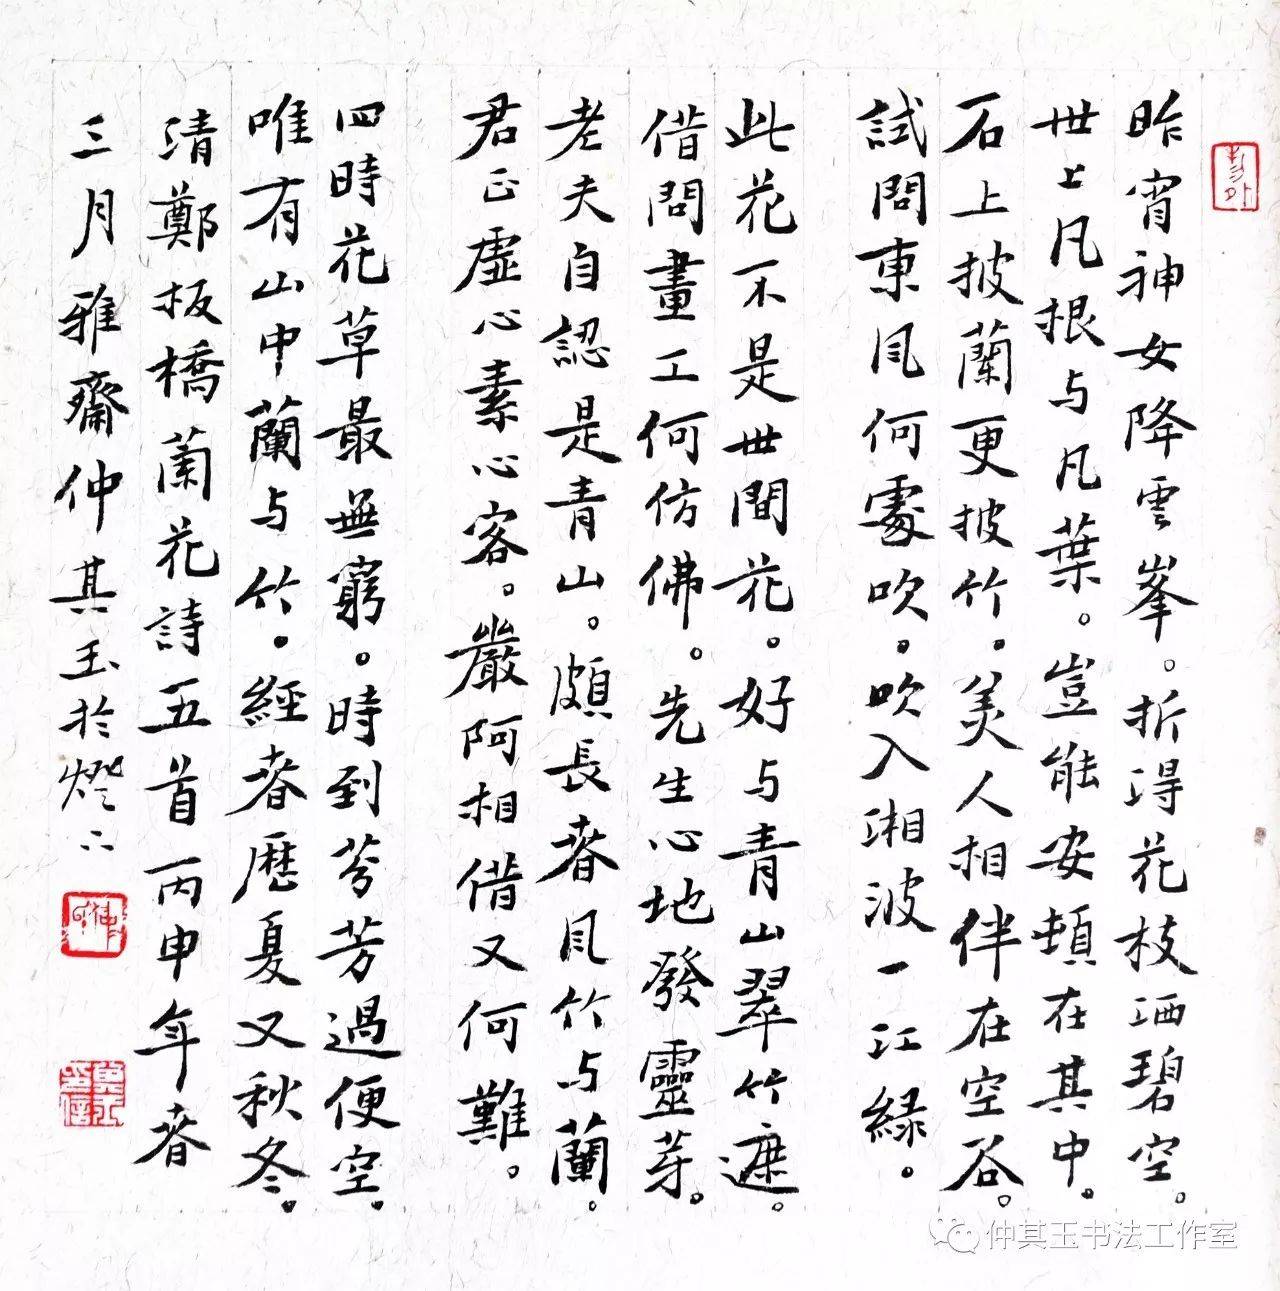 昨宵神女降雲峯。折得花枝洒碧空。
世上凡根与凡葉。豈能安頓在其中。
石上披蘭更披竹。美人相伴在空谷。
試問東風何處吹。吹入湘波一江緑。
此花不是世間花。好与青山翠竹遮。
借問畫工何仿佛。先生心地發靈芽。
老夫自認是青山。頗長春風竹与蘭。
君正虛心素心客。巖阿相借又何難。
四時花草最無窮。時到芬芳過便空。
唯有山中蘭与竹。經春歷夏又秋冬。
清鄭板橋蘭花詩五首丙申年春
三月雅齋仲其玉於燈下
仲其玉书法工作室